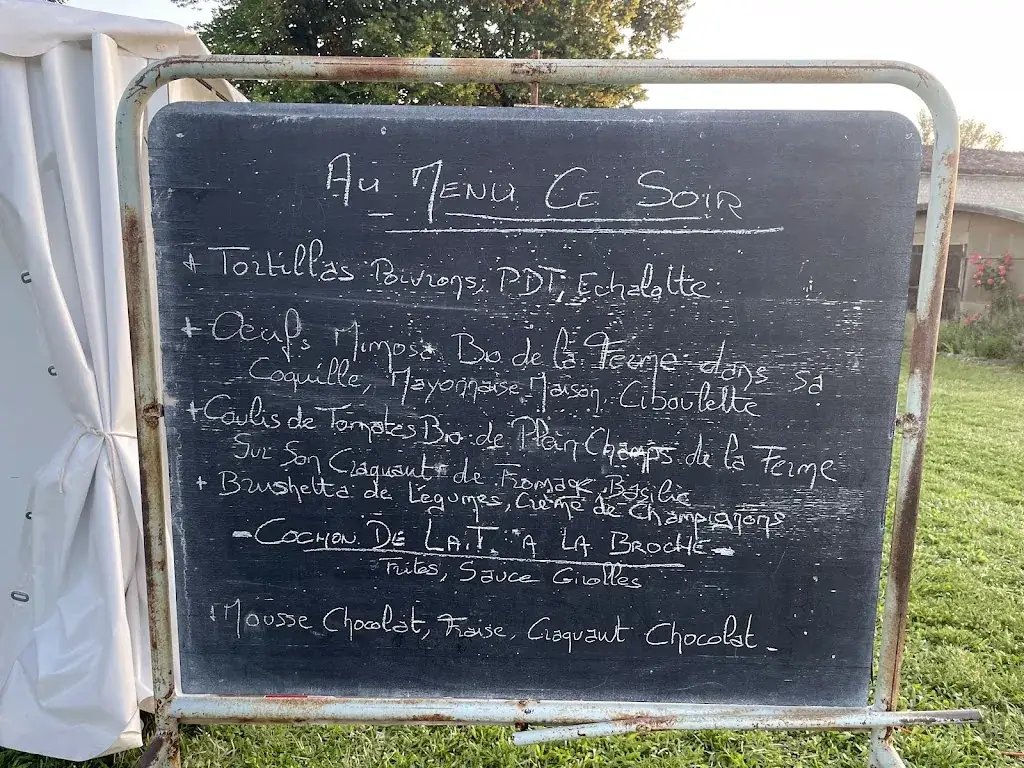 Au Menu Ce Soir
+ Tortillas Poivrons, PDT, Echalotte
+ Oeufs Mimosa Bio de la Ferme dans sa
Coquille, Mayonnaise Maison, Ciboulette
+ Coulis de Tomates Bio de Plein Champs de la Ferme
Sur Son Craquant de Fromage, Basilic
+ Brushetta de Légumes, Crème de Champignons
- COCHON DE LAIT A LA BROCHE -
Frites, Sauce Girolles
+ Mousse Chocolat, Fraise, Craquant Chocolat